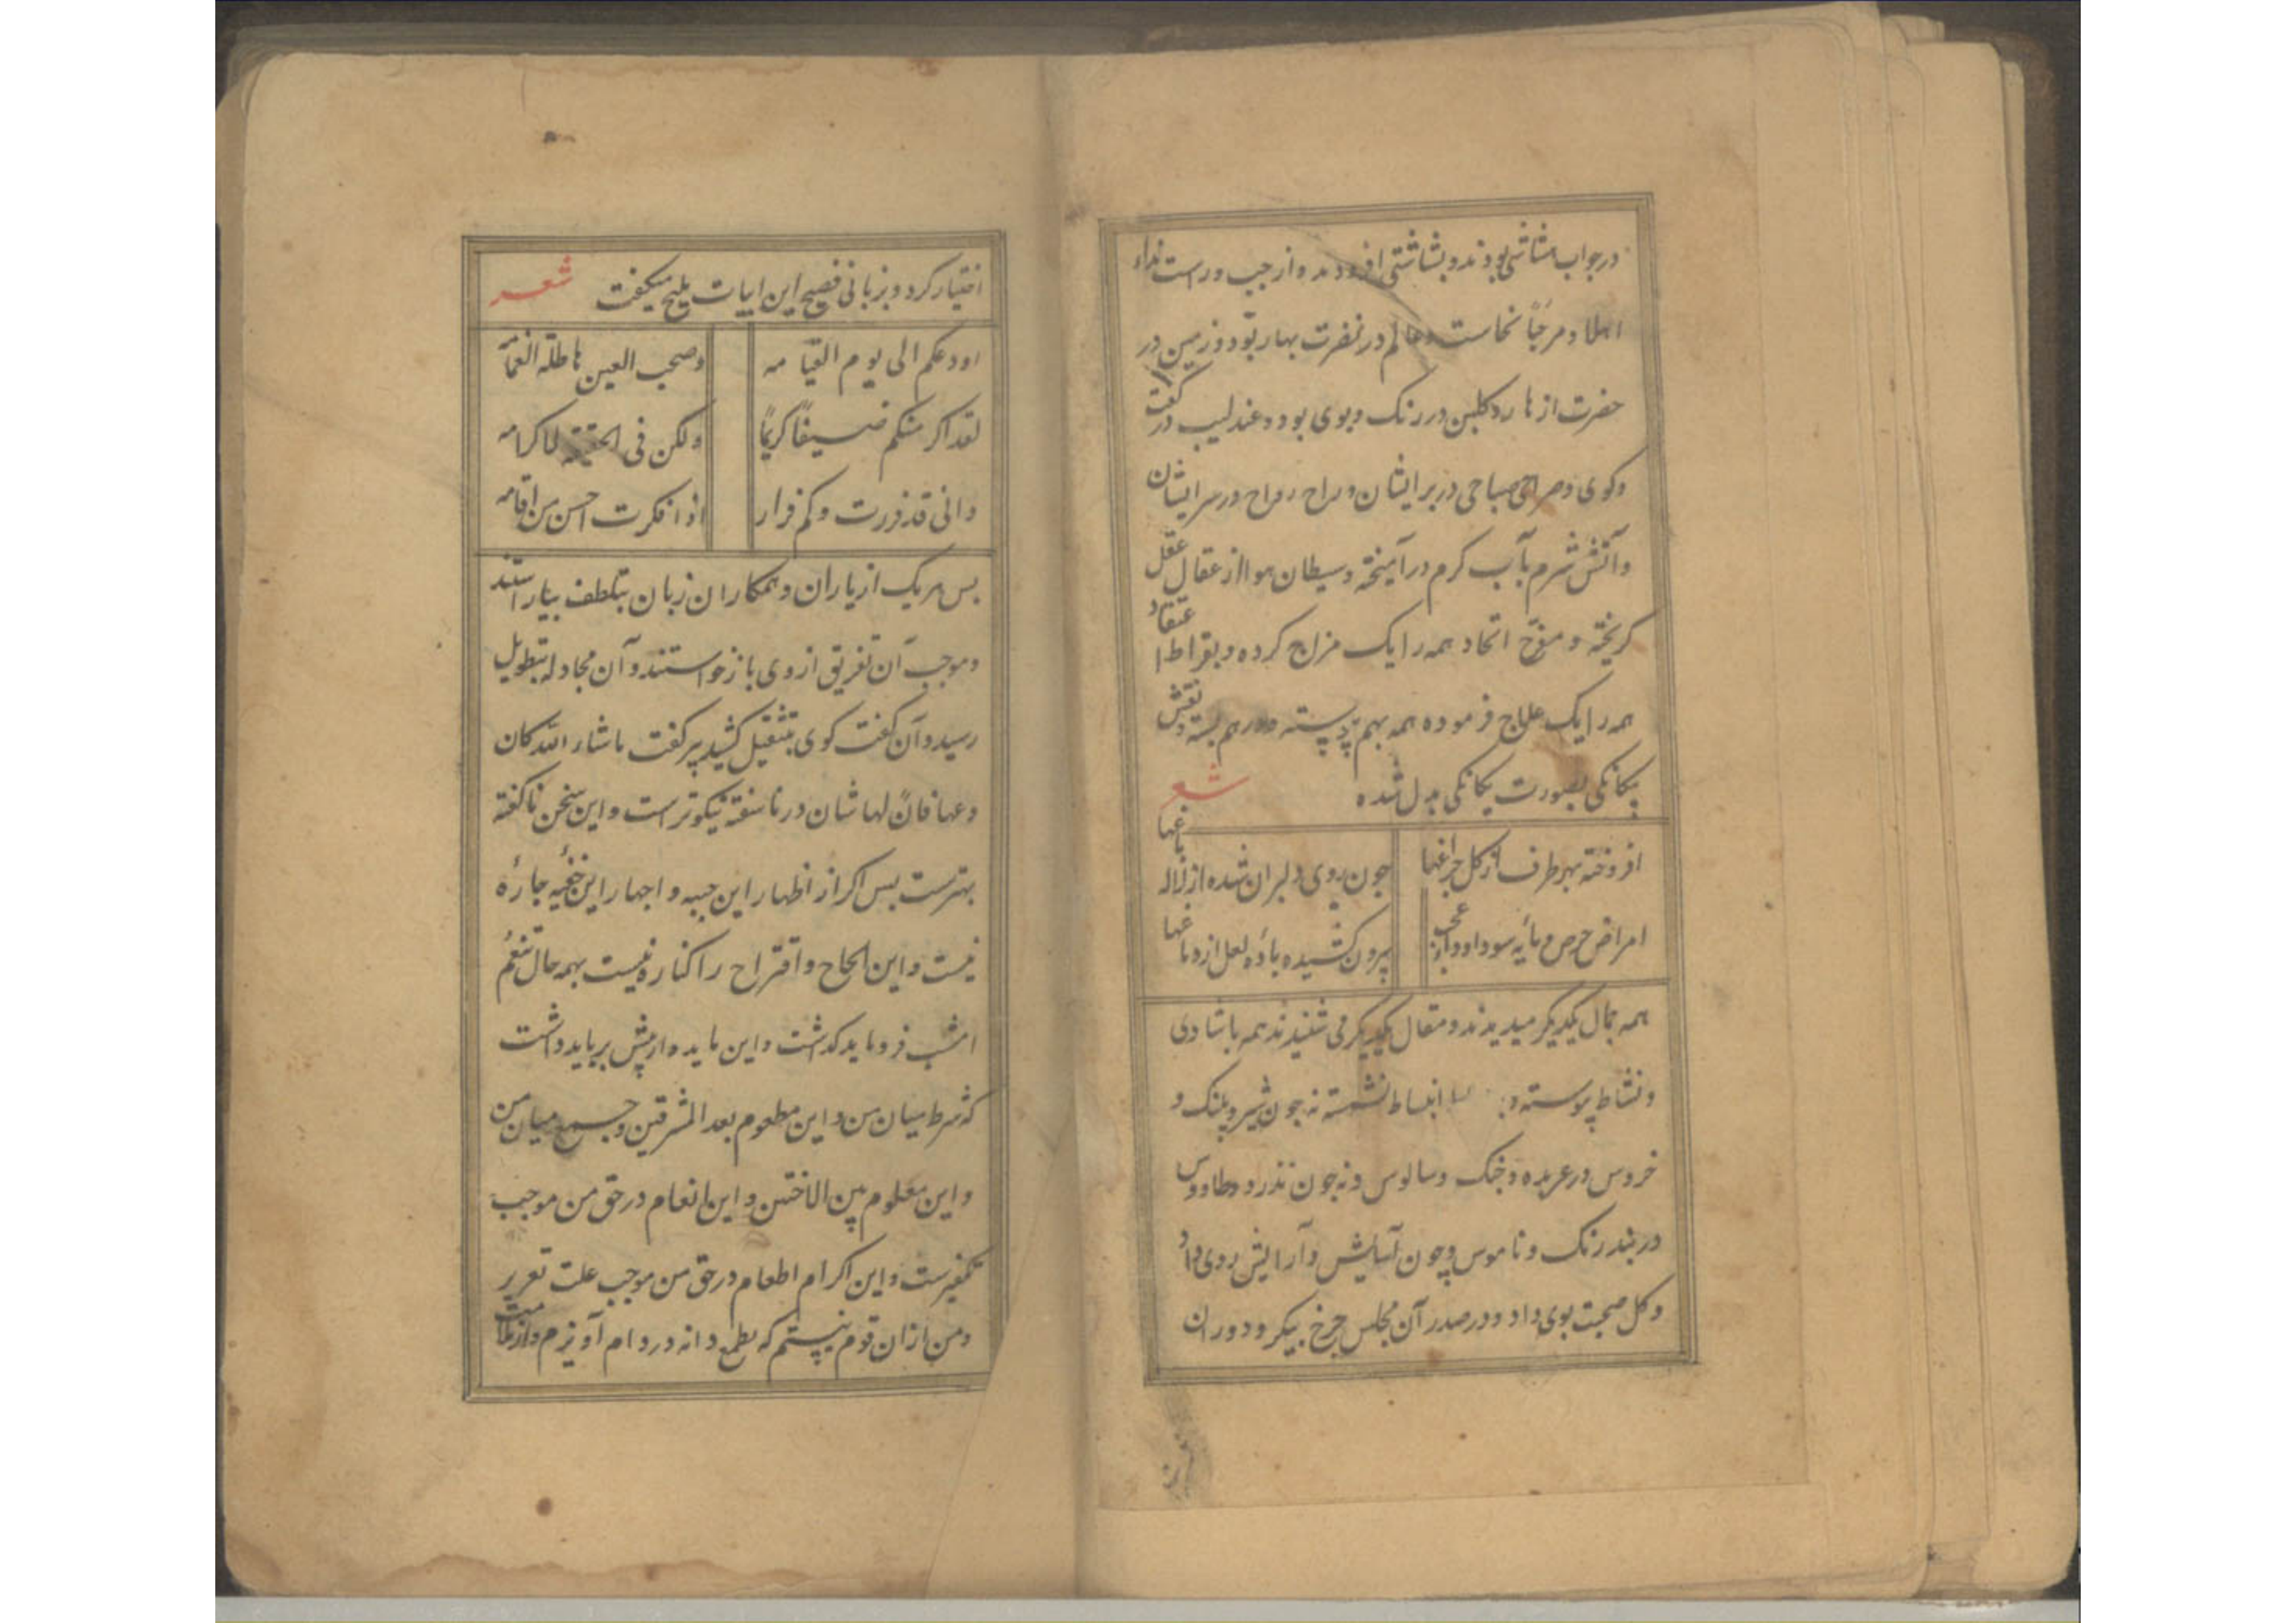 در جواب هشاشتی بودند و بشاشتی افزودند و از چپ و راست نداء
اهلا و مرحبًا نخاست و عالم در نضرت بهار بود و زمین در
حضرت ازهار و کلبن در رنک و بوی بود و عندلیب در کفت
و کوی و صراحی صباحی در بر ایشان و راح رواح در سر ایشان
و آتش شرم بآب کرم در آمیخته و سیطان هوا از عقال عقل
کریخته و مفرح اتحاد همه را یک مزاج کرده و بقراط اعتقاد
همه را یک علاج فرموده همه بهم پیوسته و در هم بسته و نقش
بیکانکی بصورت یکانکی بدل شده شعر
افروخته بهر طرف از کل چراغها
جون روی دلبران شده از لاله باغها
امراض حرص و مایه سودا و عجب
بیرون کشیده باده لعل از دماغها
همه جمال یکدیکر میدیدند و مقال یکدیکر می شنیدند همه با شادی
و نشاط پیوسته انبساط نشسته نه جون شیر و پلنک و
خروس در عربده و جنک و سالوس و نه جون تذرو و طاووس
در بند رنک و ناموس و چون آسایش و آرایش روی داد
و کل صحبت بوی داد و در صدر آن مجلس چرخ بیکر و دوران
اختیار کرد و بزبانی فصیح این ابیات ملیح میکفت شعر
اودعکم الی یوم القیامه
و صحب العین هاطلة الغمامه
لقد اکرمتکم ضیفًا کریمًا
ولکن فی الحقیقة لا کرامه
وانی قد فررت وکم فرار
اذا فکرت احسن من اقامه
بس هر یک از یاران و همکاران زبان بتلطف بیاراستند
و موجب آن تفریق از وی باز خواستند و آن مجادله بتطویل
رسید و آن کفت کوی بتثقیل کشید پیر کفت ما شاء الله کان
و عها فان لها شان در ناسفته نیکوتر است و این سخن ناکفته
بهترست بس اکر از اظهار این جبیه و اجهار این خفیه جارهٔ
نیست و این الحاح و اقتراح را کناره نیست بهمه حال تنعم
امشب فرو باید کذاشت و این مایده از پیش بر باید داشت
که شرط میان من و این مطعوم بعد المشرقین و جمع میان من
و این معلوم بین الاختین و این انعام در حق من موجب
تکفیرست و این اکرام اطعام در حق من موجب علت تعزیر
و من از ان قوم نیستم که بطمع دانه در دام آویزم و از ملامت